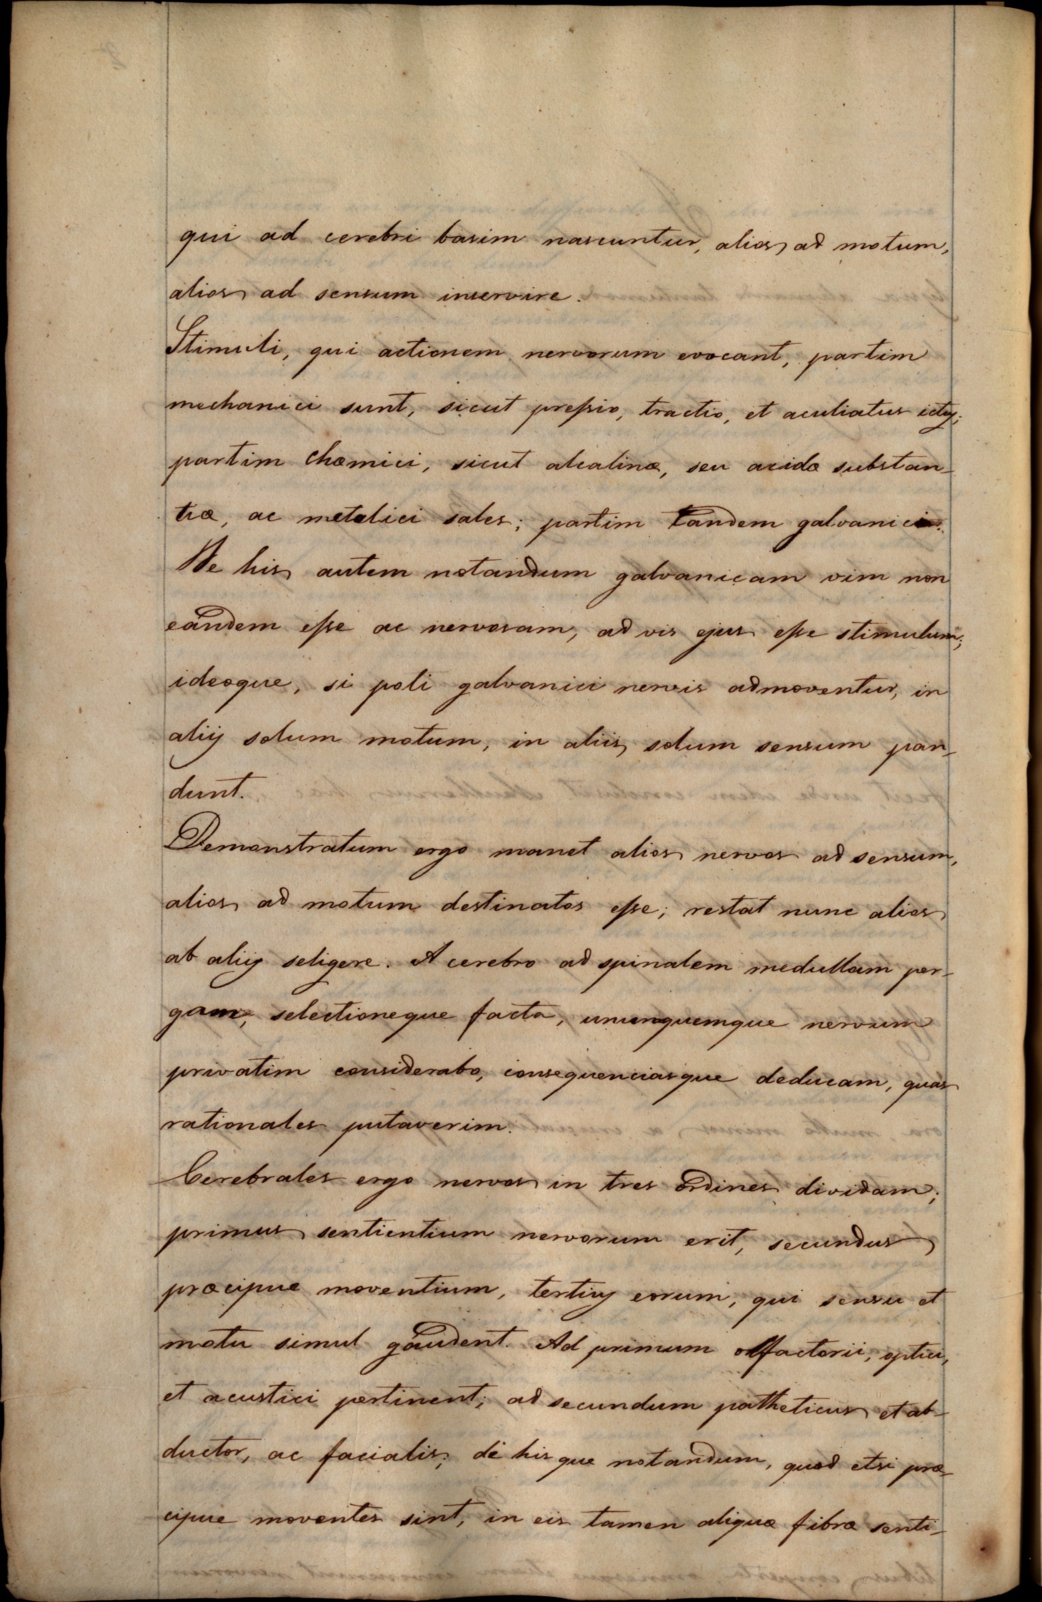 qui ad cerebri basim nascuntur, alios ad motum,
alios ad sensum inservire.
Stimuli, qui actionem nervorum evocant, partim
mechanici sunt, sicut preſsio, tractio, et aculiatus ictus;
partim chæmici, sicut alcalinæ, seu acidæ substan-
tiæ, ac metalici sales; partim tandem galvanici.
De his autem notandum galvanicam vim non
eandem eſse ac nervosam, ad vis ejus eſse stimulum;
ideoque, si poli galvanici nervis admoventur, in
aliis solum motum, in aliis solum sensum pan-
dunt.
Demonstratum ergo manet alios nervos ad sensum,
alios ad motum destinatos eſse; restat nunc alios
ab aliis seligere. A cerebro ad spinalem medullam per-
gam, selectioneque facta, unumquemque nervum
privatim considerabo, consequenciasque deducam, quas
rationales putaverim.
Cerebrales ergo nervos in tres ordines dividam;
primus sentientium nervorum erit, secundus
præcipue moventium, tertius eorum, qui sensu et
motu simul gaudent. Ad primum olfactorii, optici,
et acustici pertinent; ad secundum patheticus et ab-
ductor, ac facialis; de hisque notandum, quod etsi præ-
cipue moventes sint, in eis tamen aliquæ fibræ senti-